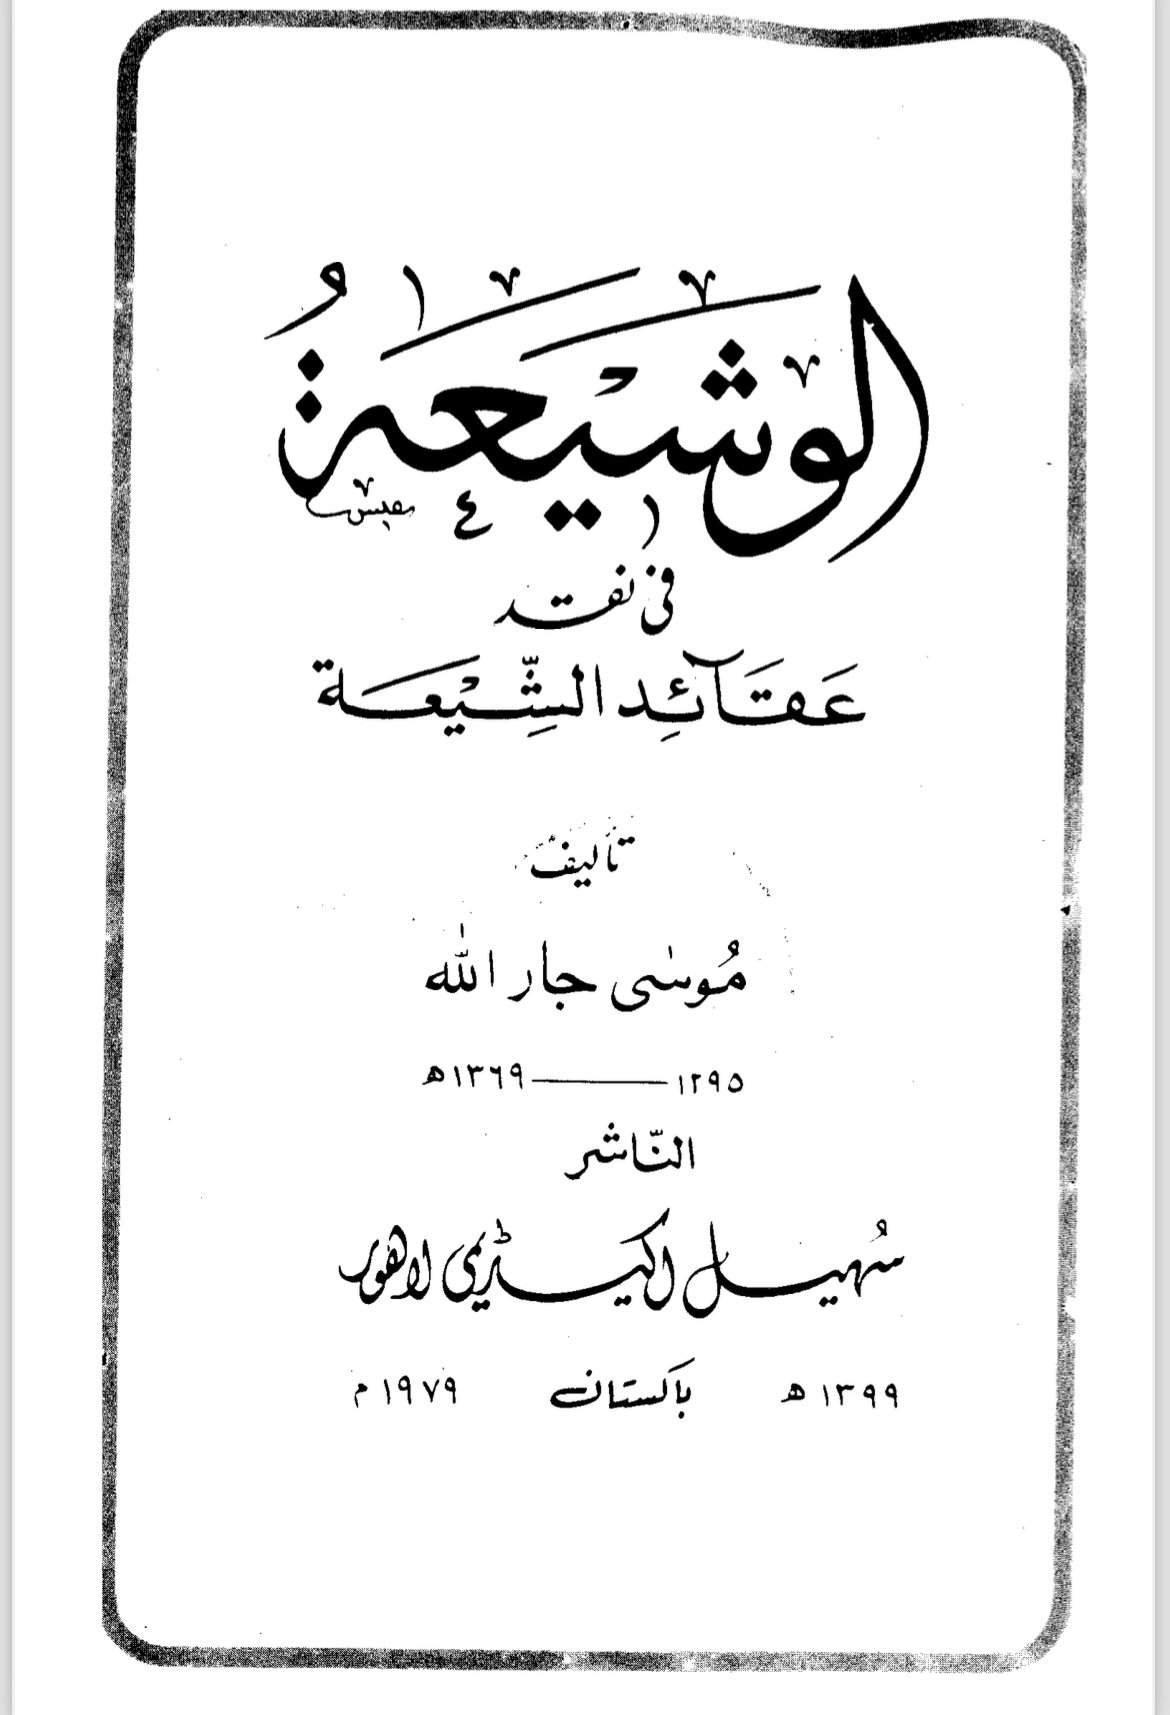 الوَشْيعَةُ
فى نقد
عَقَآئِد الشِّيْعَة
تأليف
مُوسٰى جار اللّٰه
١٢٩٥ــــــ١٣٦٩ھ
النّاشر
سُهيل اكيڈيمى لاهور
١٣٩٩ ھ باكستان ١٩٧٩ م